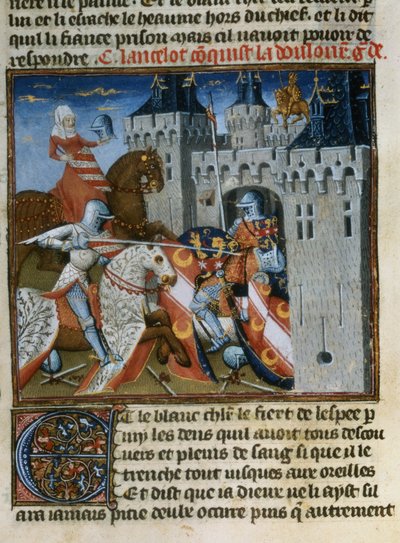 lui et esrache le heaume hors du chief. et li dit
quil li fiance prison mais cil nauoit pouoir de
respondre. C. lancelot cōquist la doulour. gde.
Et le blanc chlr le fiert de lespee p
my les dens quil auoit tous descou
uers et pleins de sang si que il le
trenche tout iusques aux oreilles
Et dist que ia dieux ne li ayst sil
ara iamais pitie deulx occire puis q̄ autrement